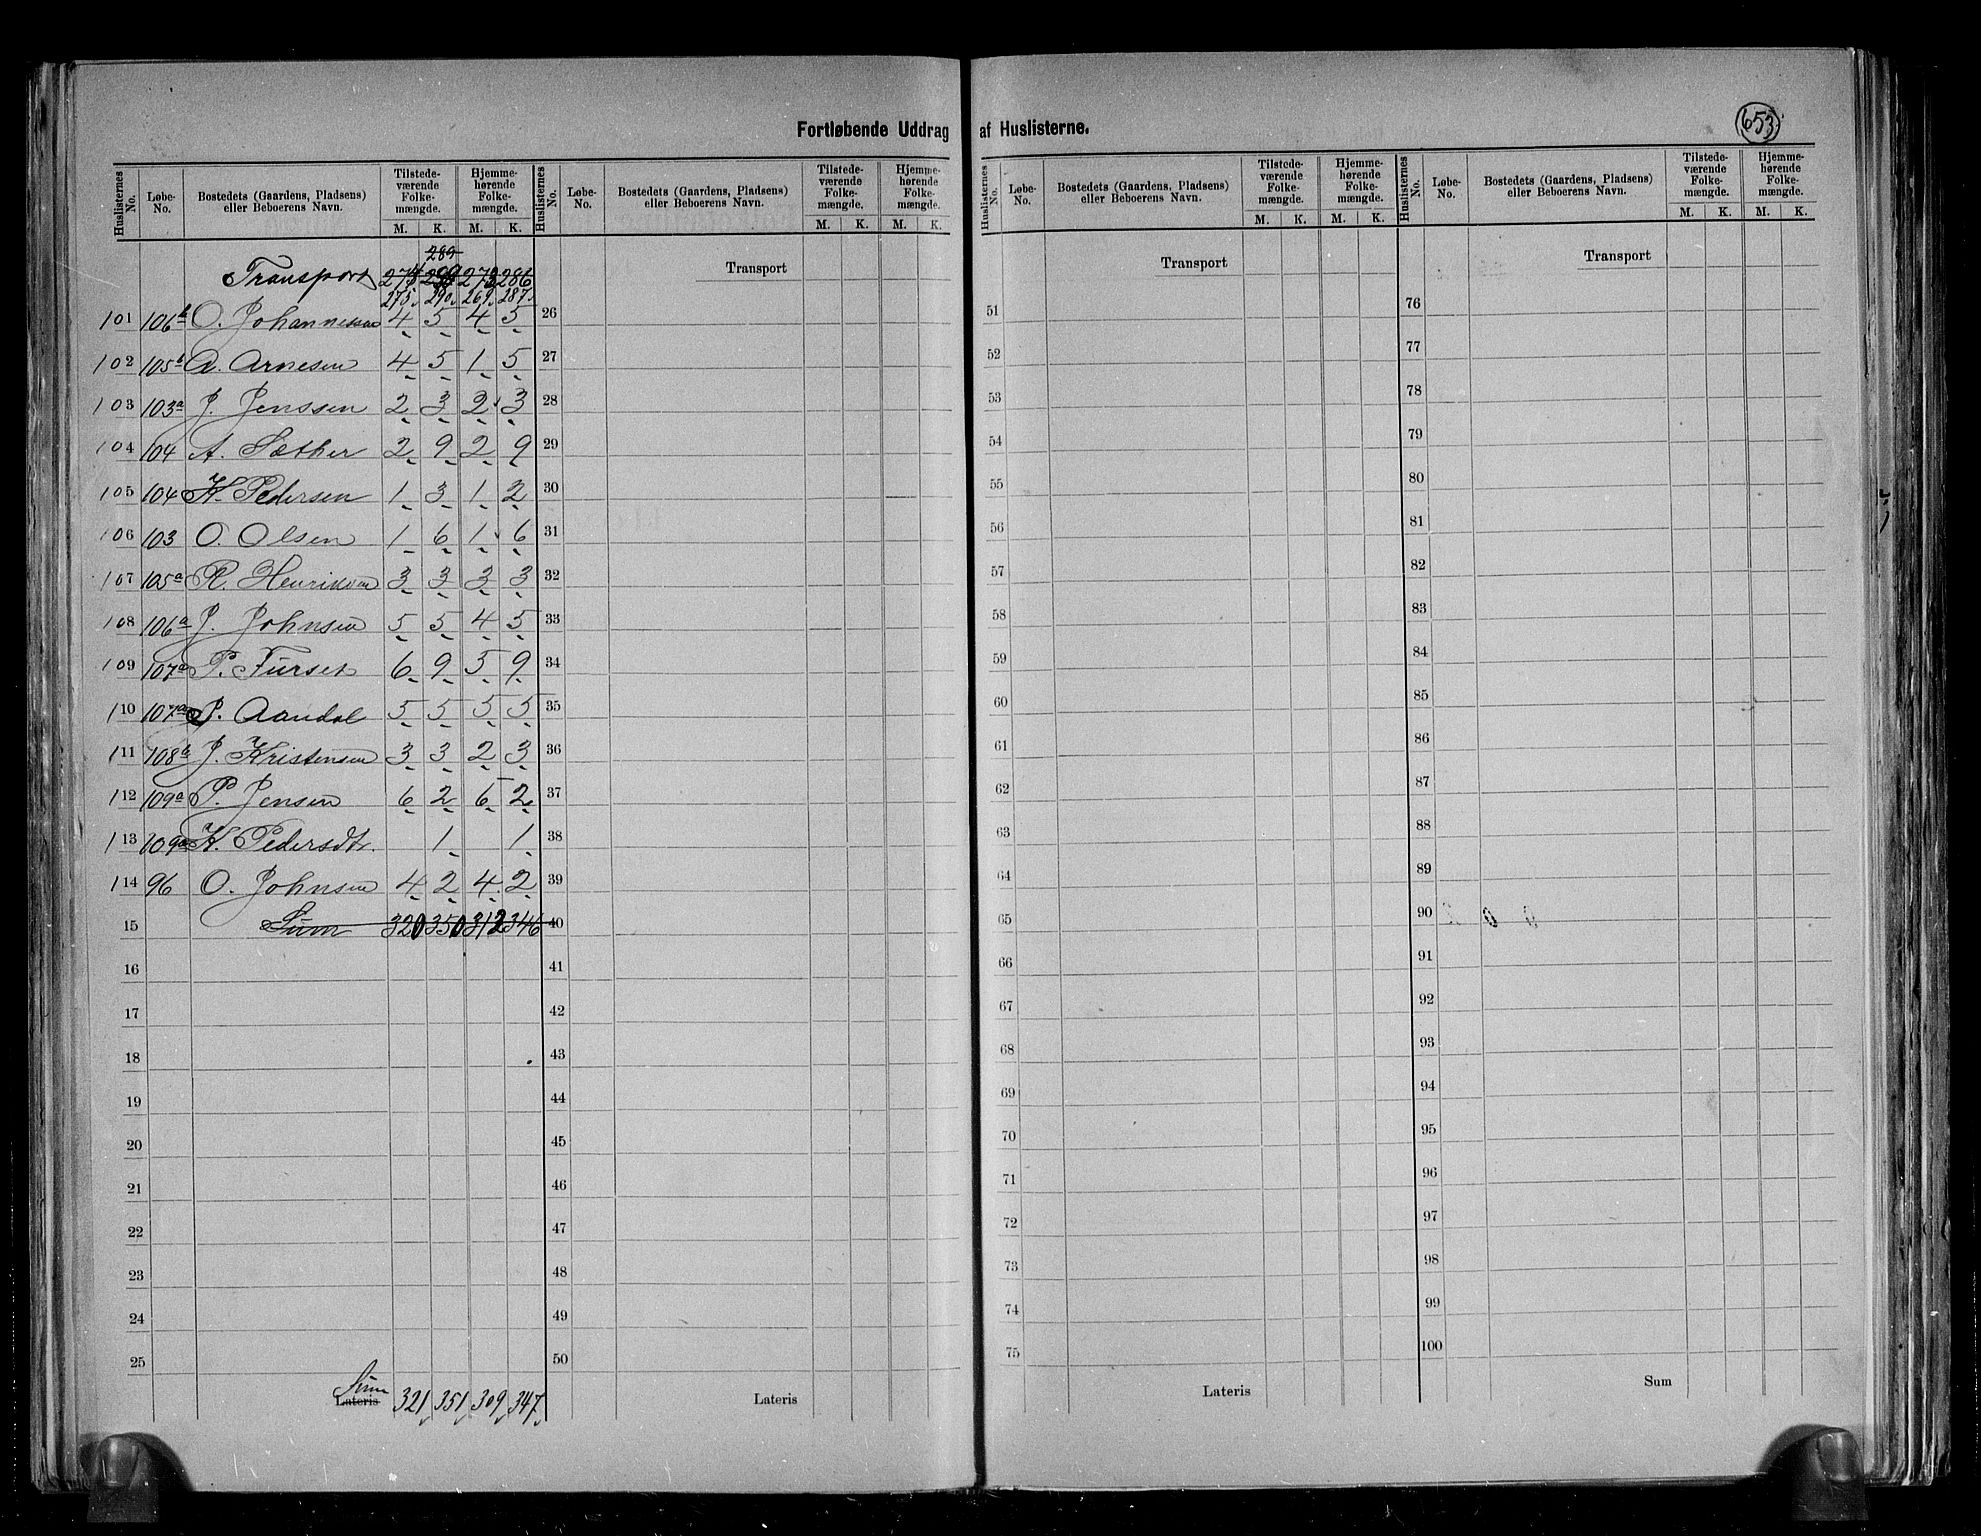 Fortløbende Uddrag af Huslisterne.
653
Huslisternes No. Løbe-No. Bostedets (Gaardens, Pladsens) eller Beboerens Navn. Tilstede-værende Folke-mængde. M. K. Hjemme-hørende Folke-mængde. M. K.
282
Transport 274 273 286
275 290 269 287
101 106b O. Johannessen 4 5 4 5
102 105b A. Arnesen 4 5 1 5
103 103a J. Jenssen 2 3 2 3
104 104 A. Sæther 2 9 2 9
105 104 K. Pedersen 1 3 1 2
106 103 O. Olsen 1 6 1 6
107 105a R. Henriksen 3 3 3 3
108 106a J. Johnsen 5 5 4 5
109 107a P. Furset 6 9 5 9
110 107a P. Aandal 5 5 5 5
111 108a J. Kristensen 3 3 2 3
112 109a P. Jensen 6 2 6 2
113 109a K. Pedersdtr. 1 1
114 96 O. Johnsen 4 2 4 2
15 Sum 320 350 312 346
16
17
18
19
20
21
22
23
24
25
Sum
Lateris 321 351 309 347
Huslisternes No. Løbe-No. Bostedets (Gaardens, Pladsens) eller Beboerens Navn. Tilstede-værende Folke-mængde. M. K. Hjemme-hørende Folke-mængde. M. K.
Transport
26
27
28
29
30
31
32
33
34
35
36
37
38
39
40
41
42
43
44
45
46
47
48
49
50
Lateris
Huslisternes No. Løbe-No. Bostedets (Gaardens, Pladsens) eller Beboerens Navn. Tilstede-værende Folke-mængde. M. K. Hjemme-hørende Folke-mængde. M. K.
Transport
51
52
53
54
55
56
57
58
59
60
61
62
63
64
65
66
67
68
69
70
71
72
73
74
75
Lateris
Huslisternes No. Løbe-No. Bostedets (Gaardens, Pladsens) eller Beboerens Navn. Tilstede-værende Folke-mængde. M. K. Hjemme-hørende Folke-mængde. M. K.
Transport
76
77
78
79
80
81
82
83
84
85
86
87
88
89
90
91
92
93
94
95
96
97
98
99
100
Sum